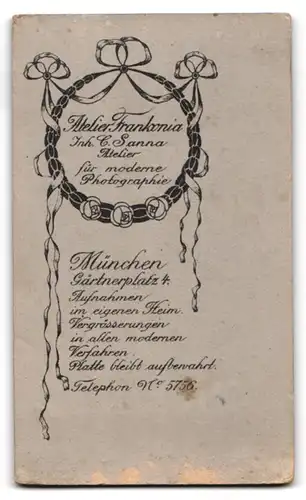 Atelier Frankonia
Inh. C. Sanna
Atelier
für moderne
Photographie
München
Gärtnerplatz 4.
Aufnahmen
im eigenen Heim.
Vergrösserungen
in allen modernen
Verfahren.
Platte bleibt aufbewahrt.
Telephon No 5756.